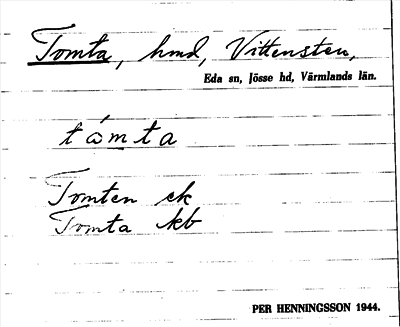 Tomta, hmd, Vittensten,
Eda sn, Jösse hd, Värmlands län.
tómta
Tomten ek
Tomta kb
PER HENNINGSSON 1944.